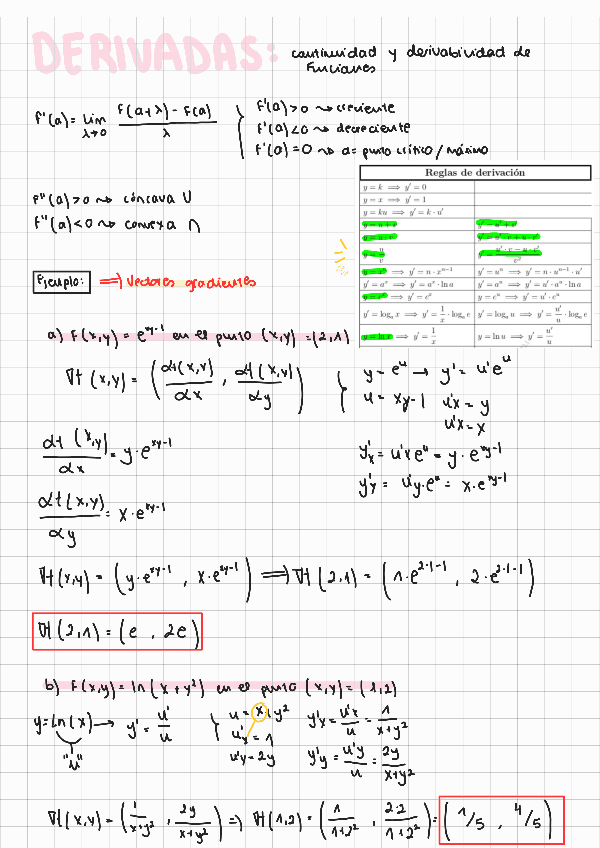 DERIVADAS: continuidad y derivabilidad de
funciones
F'(a) = lim λ→0 F(a+λ) - F(a) / λ
F'(a) > 0 ⇝ creciente
F'(a) < 0 ⇝ decreciente
F'(a) = 0 ⇝ a = punto crítico / máximo
F''(a) > 0 ⇝ cóncava ∪
F''(a) < 0 ⇝ convexa ∩
Reglas de derivación
y = k ⟹ y' = 0
y = x ⟹ y' = 1
y = ku ⟹ y' = k · u'
y = u + v y' = u' + v'
y = u · v y' = u' · v + u · v'
y = u/v y' = u' · v − u · v' / v²
y = xⁿ ⟹ y' = n · xⁿ⁻¹ y = uⁿ ⟹ y' = n · uⁿ⁻¹ · u'
y = aˣ ⟹ y' = aˣ · ln a y = aᵘ ⟹ y' = u' · aᵘ · ln a
y = eˣ ⟹ y' = eˣ y = eᵘ ⟹ y' = u' · eᵘ
y = logₐ x ⟹ y' = 1/x · logₐ e y = logₐ u ⟹ y' = u'/u · logₐ e
y = ln x ⟹ y' = 1/x y = ln u ⟹ y' = u'/u
Ejemplo: ⟹ Vectores gradientes
a) F(x,y) = e^(xy-1) en el punto (x,y) = (2,1)
∇f (x,y) = (αf(x,y)/αx , αf(x,y)/αy)
y = e^u → y' = u'e^u
u = xy-1 u'x = y
u'x = x
αf(x,y)/αx = y · e^(xy-1)
y'x = u'x e^u = y · e^(xy-1)
y'x = u'y · e^u = x · e^(xy-1)
αf(x,y)/αy = x · e^(xy-1)
∇f(x,y) = (y · e^(xy-1) , x · e^(xy-1)) ⟹ ∇f(2,1) = (1 · e^(2·1-1) , 2 · e^(2·1-1))
∇f(2,1) = (e , 2e)
b) F(x,y) = ln(x + y²) en el punto (x,y) = (1,2)
y = ln(x) → y' = u'/u
"u"
u = x + y²
u'x = 1
u'y = 2y
y'x = u'x/u = 1/x+y²
y'y = u'y/u = 2y/x+y²
∇f(x,y) = (1/x+y² , 2y/x+y²) ⟹ ∇f(1,2) = (1/1+2² , 2·2/1+2²) = (1/5 , 4/5)